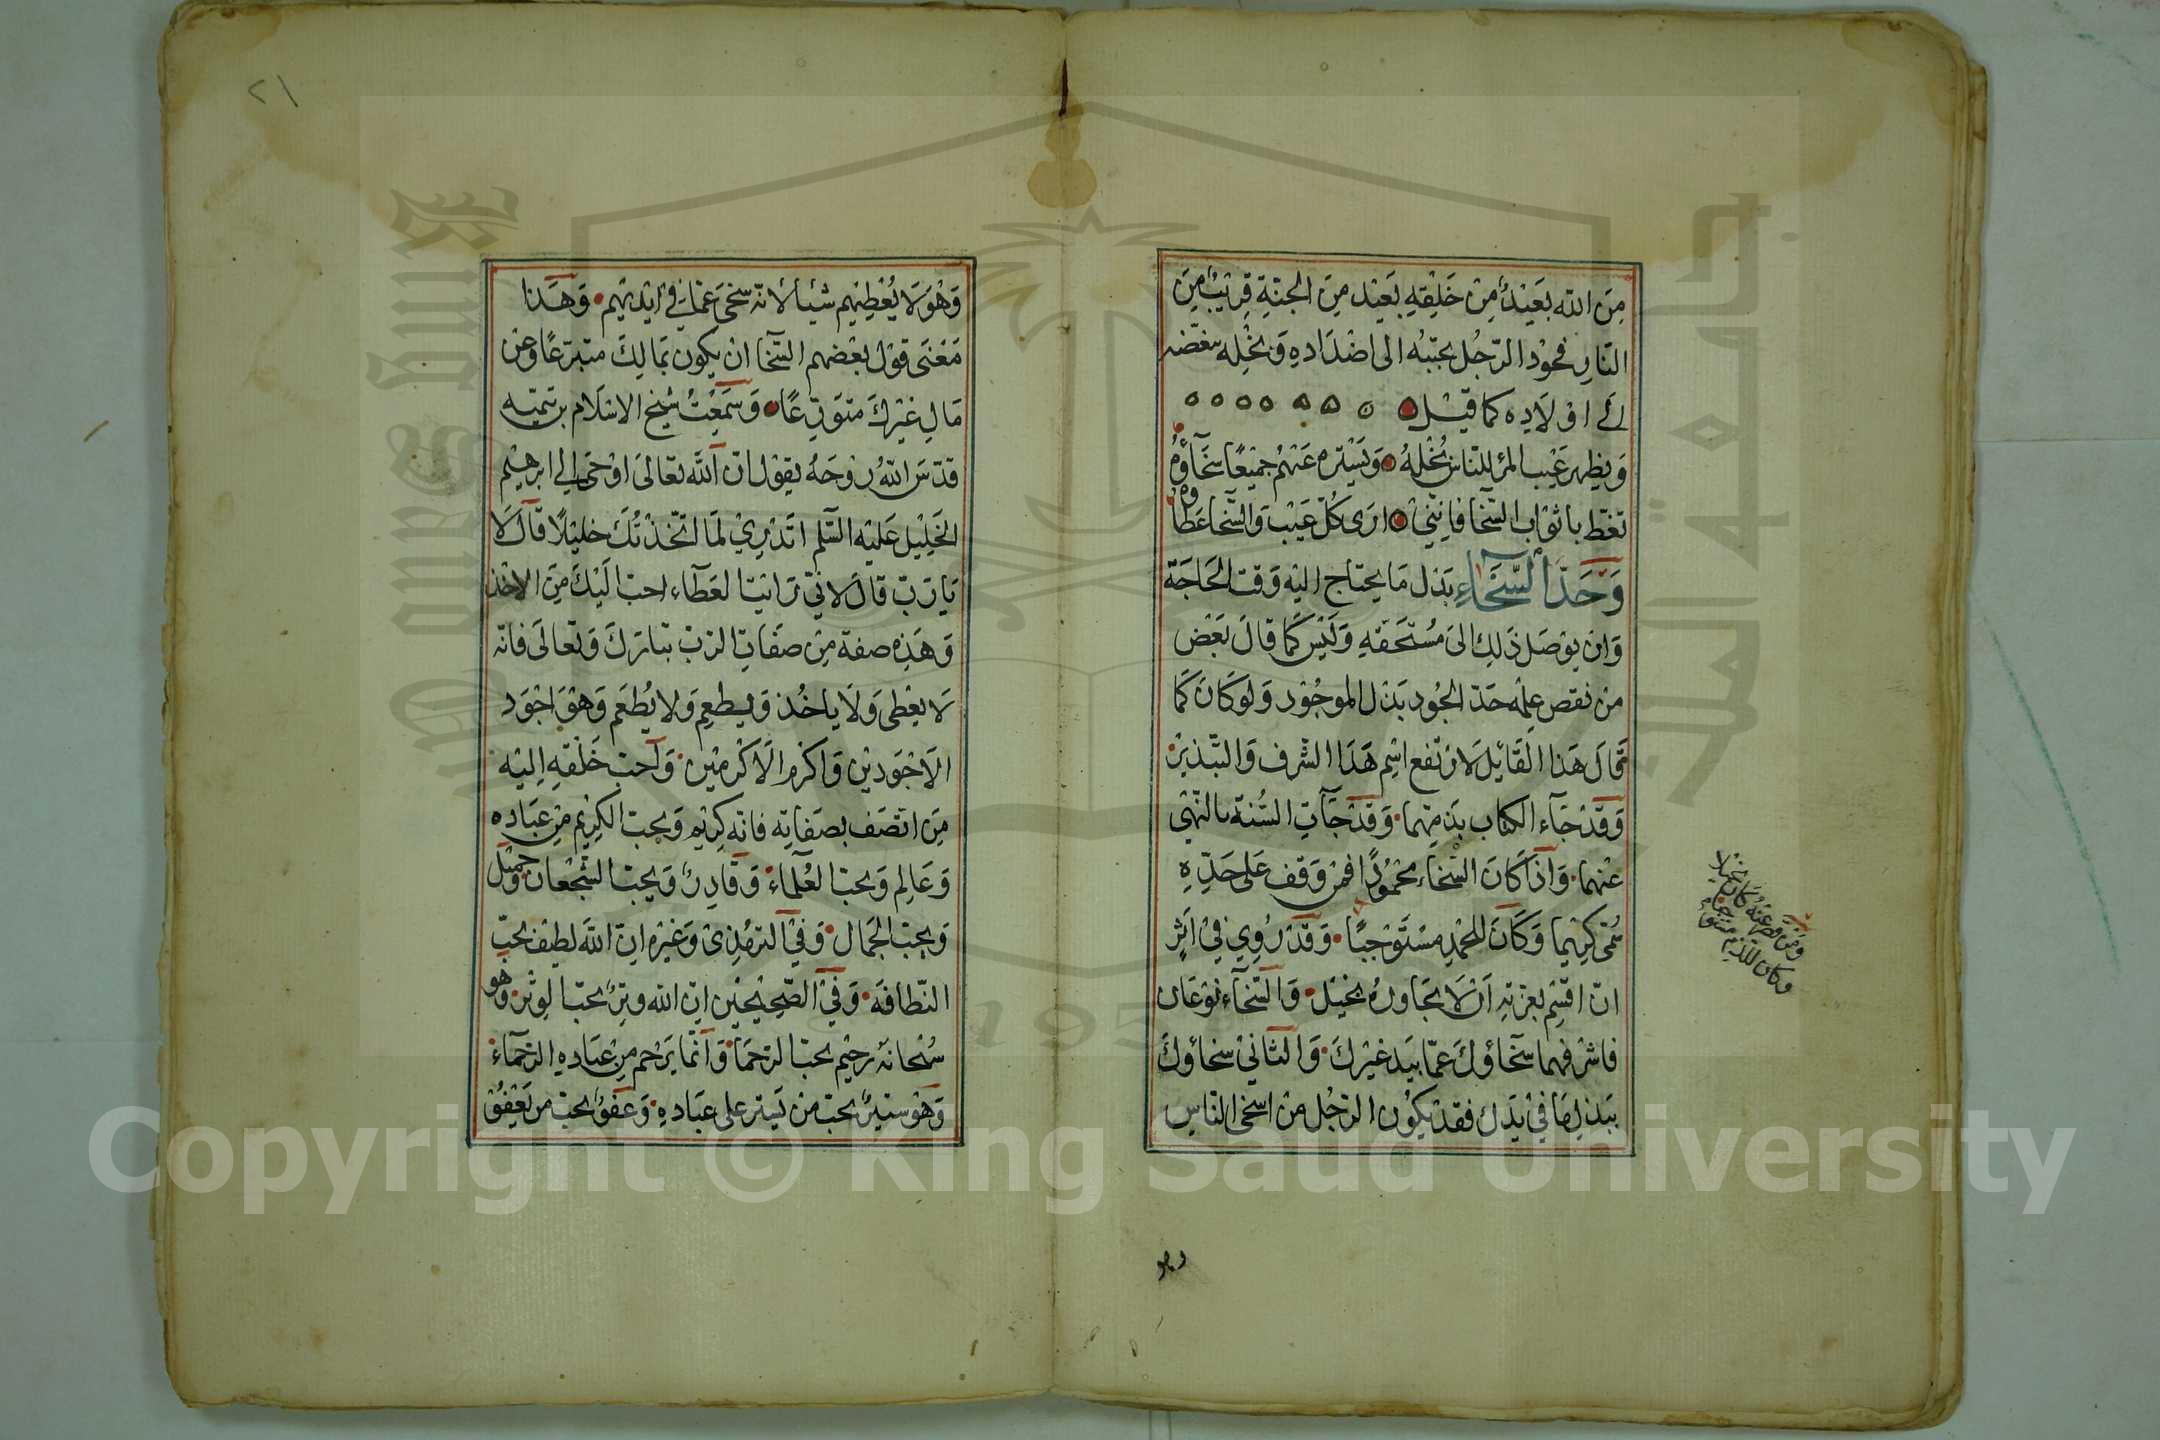 من الله بعيد من خلقه بعيد من الجنة قريب من
النار فجود الرجل يحببه الى اضداده وبخله يبغضه
الى اولاده كما قيل
ويظهر عيب المرء للناس بخله وتستره عنهم جميعا سخاؤه
تغط باثواب السخا فانني ارى كل عيب والسخا غطاؤه
وحد السخاء بذل ما يحتاج اليه وقت الحاجة
وان يوصل ذلك الى مستحقه وليس كما قال بعض
من نقص علمه حد الجود بذل الموجود ولو كان كما
قال هذا القايل لارتفع اسم هذا السرف والتبذير
وقد جآء الكتاب بذمهما وقد جآت السنة بالنهي
عنهما واذا كان السخاء محمودا فمن وقف على حده
سمى كريما وكان للحمد مستوجبا وقد روي في اثر
ان اقسم بعزته ان لا يجاوره بخيل والسخآء نوعان
فاشرفهما سخاؤك عما بيد غيرك والثاني سخاؤك
ببذل ما في يدك فقد يكون الرجل من اسخى الناس
ومن قصر عنه كان بخيلا
وكان للذم مستوجبا
وهو
٢١
وهو لا يعطيهم شيأ لانه سخى عما في ايديهم وهذا
معنى قول بعضهم السخا ان يكون بمالك متبرعا وعن
مال غيرك متورعا وسمعت شيخ الاسلام بن تيميه
قدس الله روحه يقول ان الله تعالى اوحى الي ابرهيم
الخليل عليه السلم اتدري لما اتخذتك خليلا قال لا
يا رب قال لاني رايت العطاء احب اليك من الاخذ
وهذه صفة من صفات الرب تبارك وتعالى فانه
لا يعطى ولا ياخذ ويطعم ولا يطعم وهو اجود
الاجودين واكرم الاكرمين واحب خلقه اليه
من اتصف بصفاته فانه كريم ويحب الكريم من عباده
وعالم ويحب العلمآء وقادر ويحب الشجعان وجميل
ويحب الجمال وفي الترمذي وغيره ان الله لطيف يحب
النظافة وفي الصحيحين ان الله وتر يحب الوتر وهو
سبحانه رحيم يحب الرحما وانما يرحم من عباده الرحمآء
وهو ستير يحب من يستر على عباده وعفو يحب من يعفو
Copyright © King Saud University
جامعة الملك سعود
King Saud University
1957